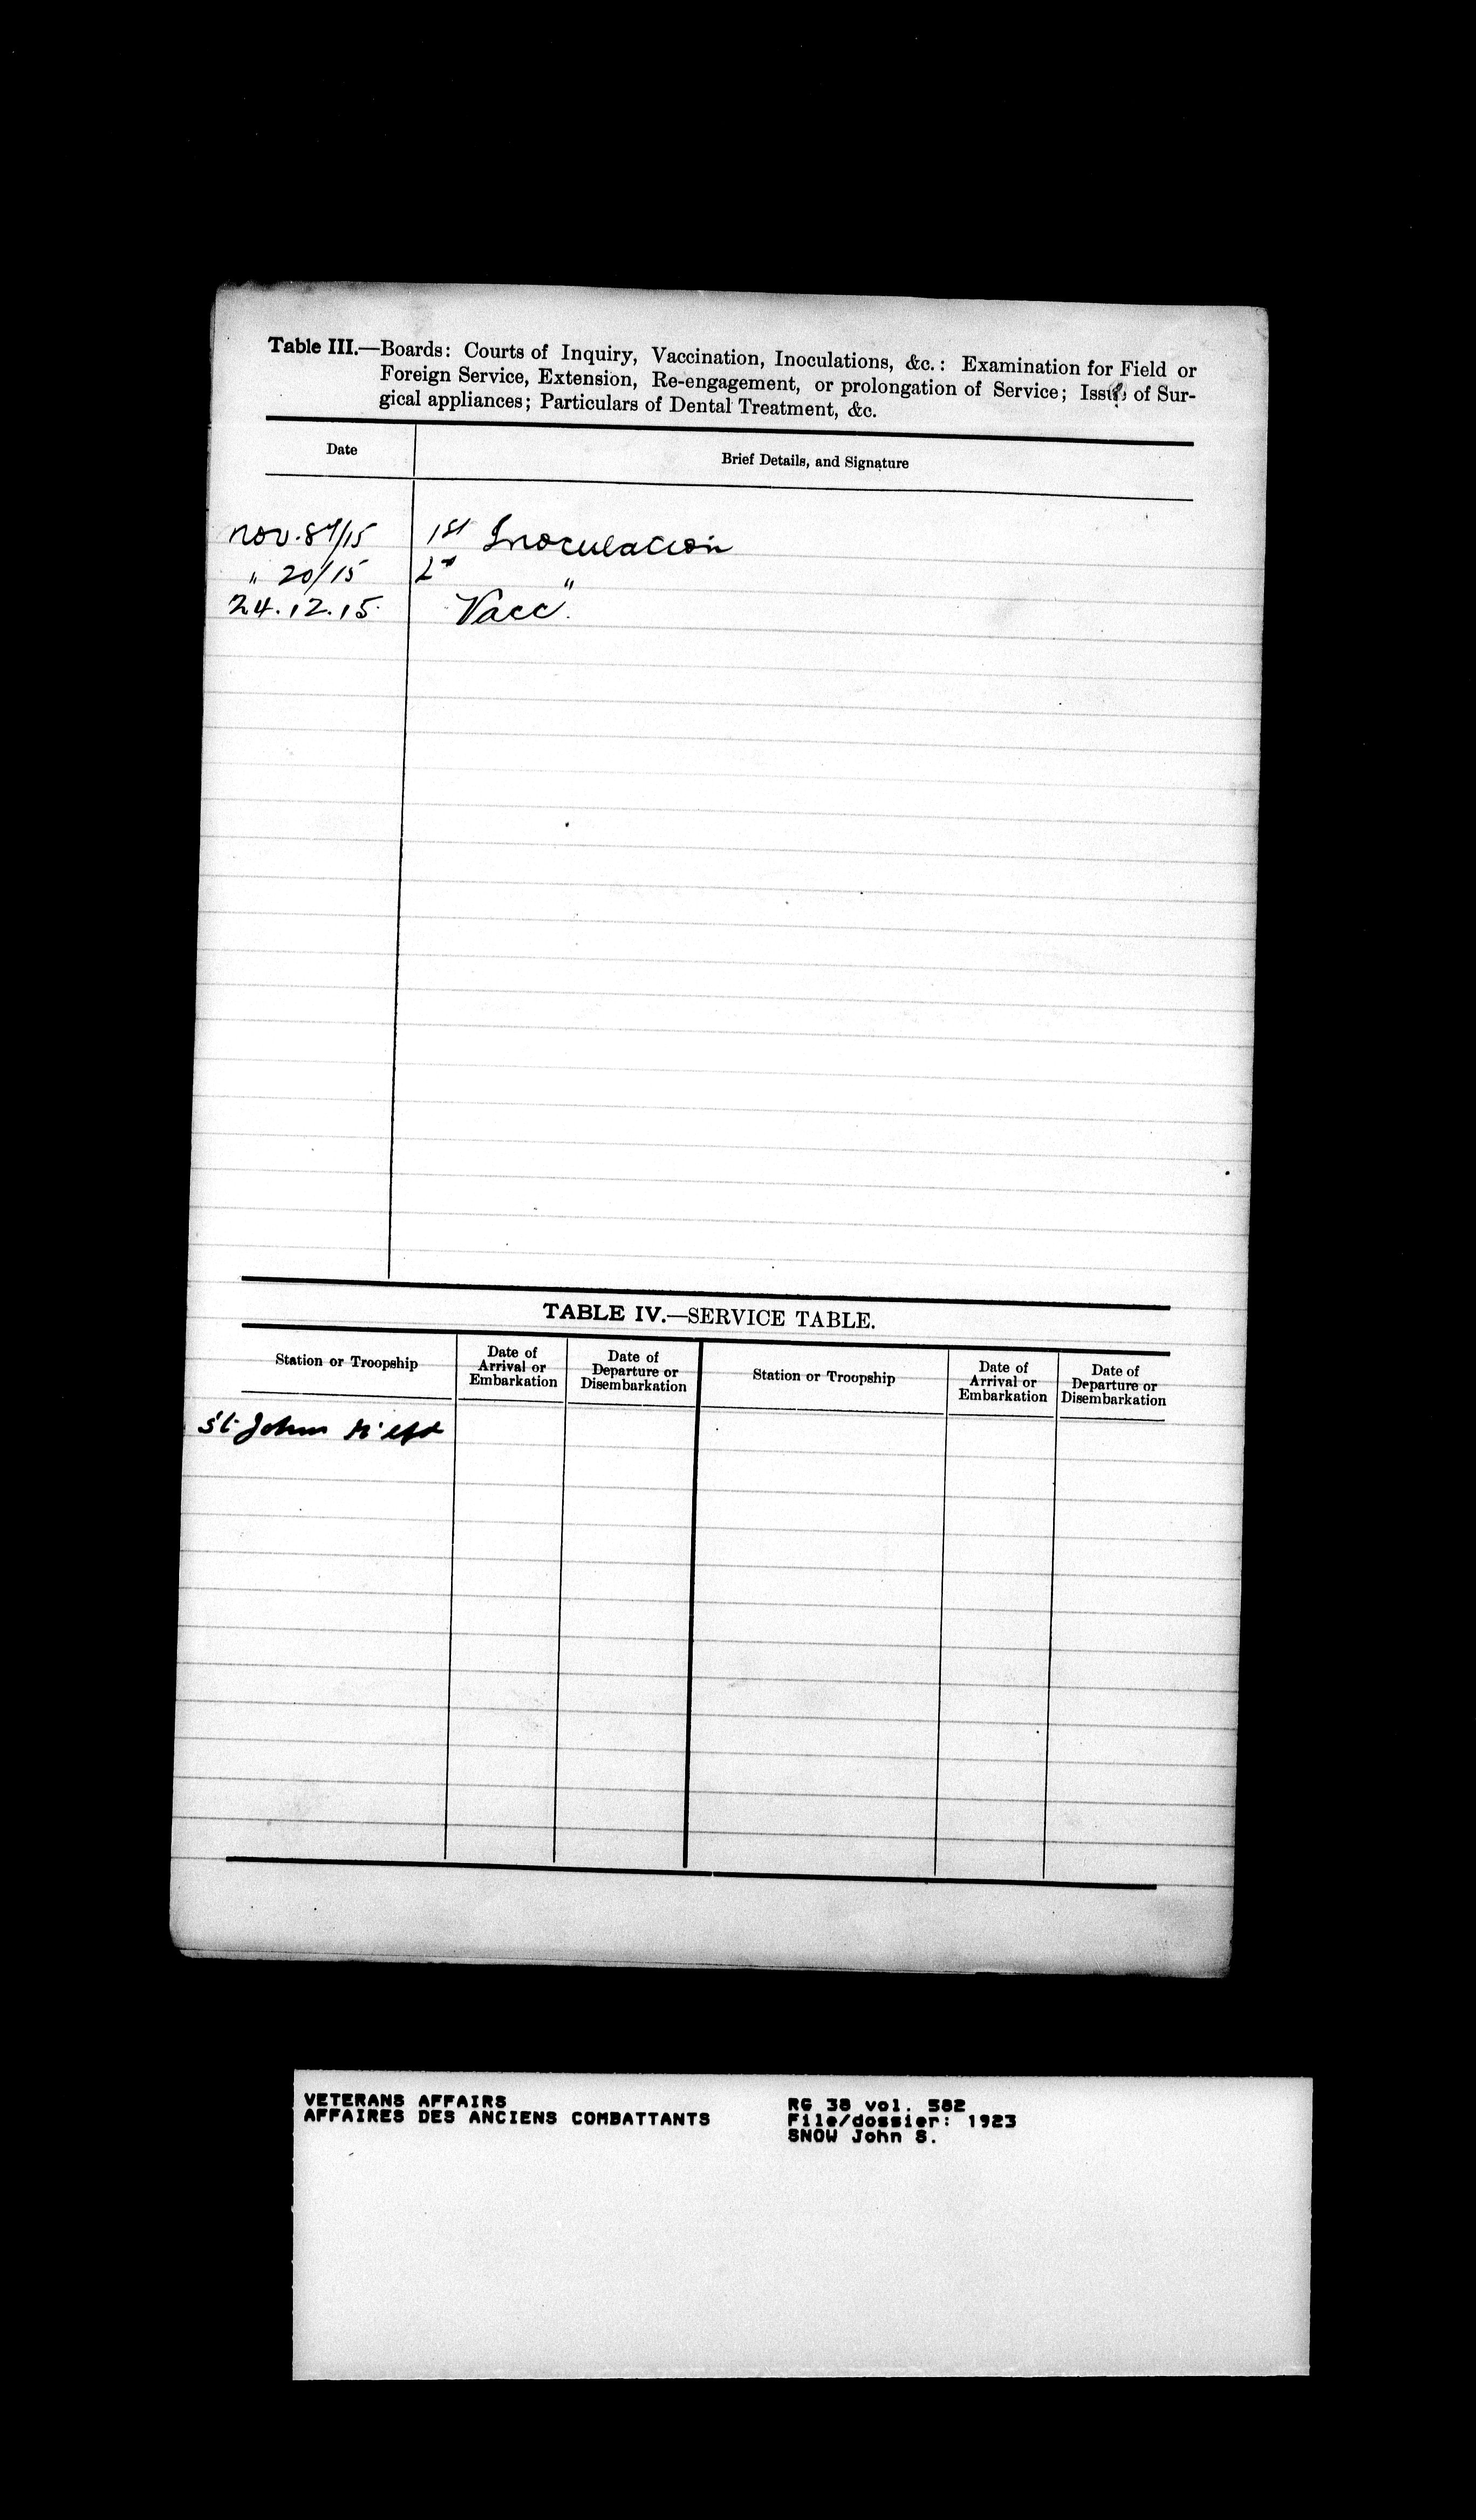 Table III.—Boards: Courts of Inquiry, Vaccination, Inoculations, &c.: Examination for Field or
Foreign Service, Extension, Re-engagement, or prolongation of Service; Issue of Sur-
gical appliances; Particulars of Dental Treatment, &c.
Date
Brief Details, and Signature
Nov. 8th/15 1st Inoculation
" 20/15 2nd "
24.12.15. Vacc.
TABLE IV.—SERVICE TABLE.
Station or Troopship
Date of
Arrival or
Embarkation
Date of
Departure or
Disembarkation
Station or Troopship
Date of
Arrival or
Embarkation
Date of
Departure or
Disembarkation
St Johns N'fld
VETERANS AFFAIRS
AFFAIRES DES ANCIENS COMBATTANTS
RG 38 vol. 582
File/dossier: 1923
SNOW John S.